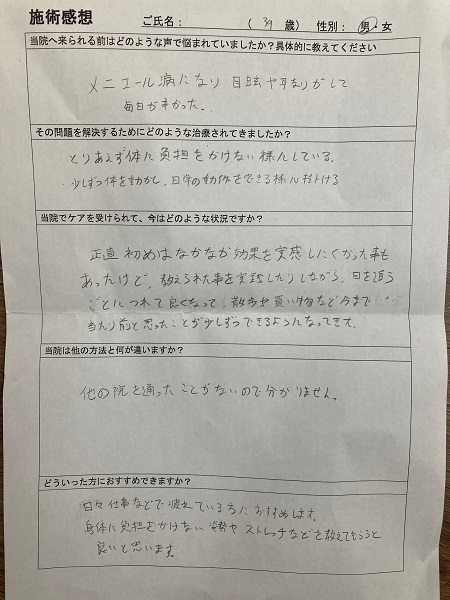 施術感想 ご氏名： （39歳）性別：男・女
当院へ来られる前はどのような声で悩まれていましたか？具体的に教えてください
メニエール病になり 目眩や耳なりがして
毎日が辛かった。
その問題を解決するためにどのような治療されてきましたか？
とりあえず体に負担をかけない様にしている。
少しずつ体を動かし、日常の動作をできる様に
当院でケアを受けられて、今はどのような状況ですか？
正直 初めはなかなか効果を実感しにくかった事も
あったけど、教えられた事を実践したりしながら、日を追う
ごとにつれて良くなって、散歩や買い物など今まで
当たり前と思ったことが少しずつできるようになってきた。
当院は他の方法と何が違いますか？
他の院を通ったことがないので分かりません。
どういった方におすすめできますか？
日々仕事などで疲えている方におすすめします。
身体に負担をかけない姿勢やストレッチなどを教えてもらうと
良いと思います。